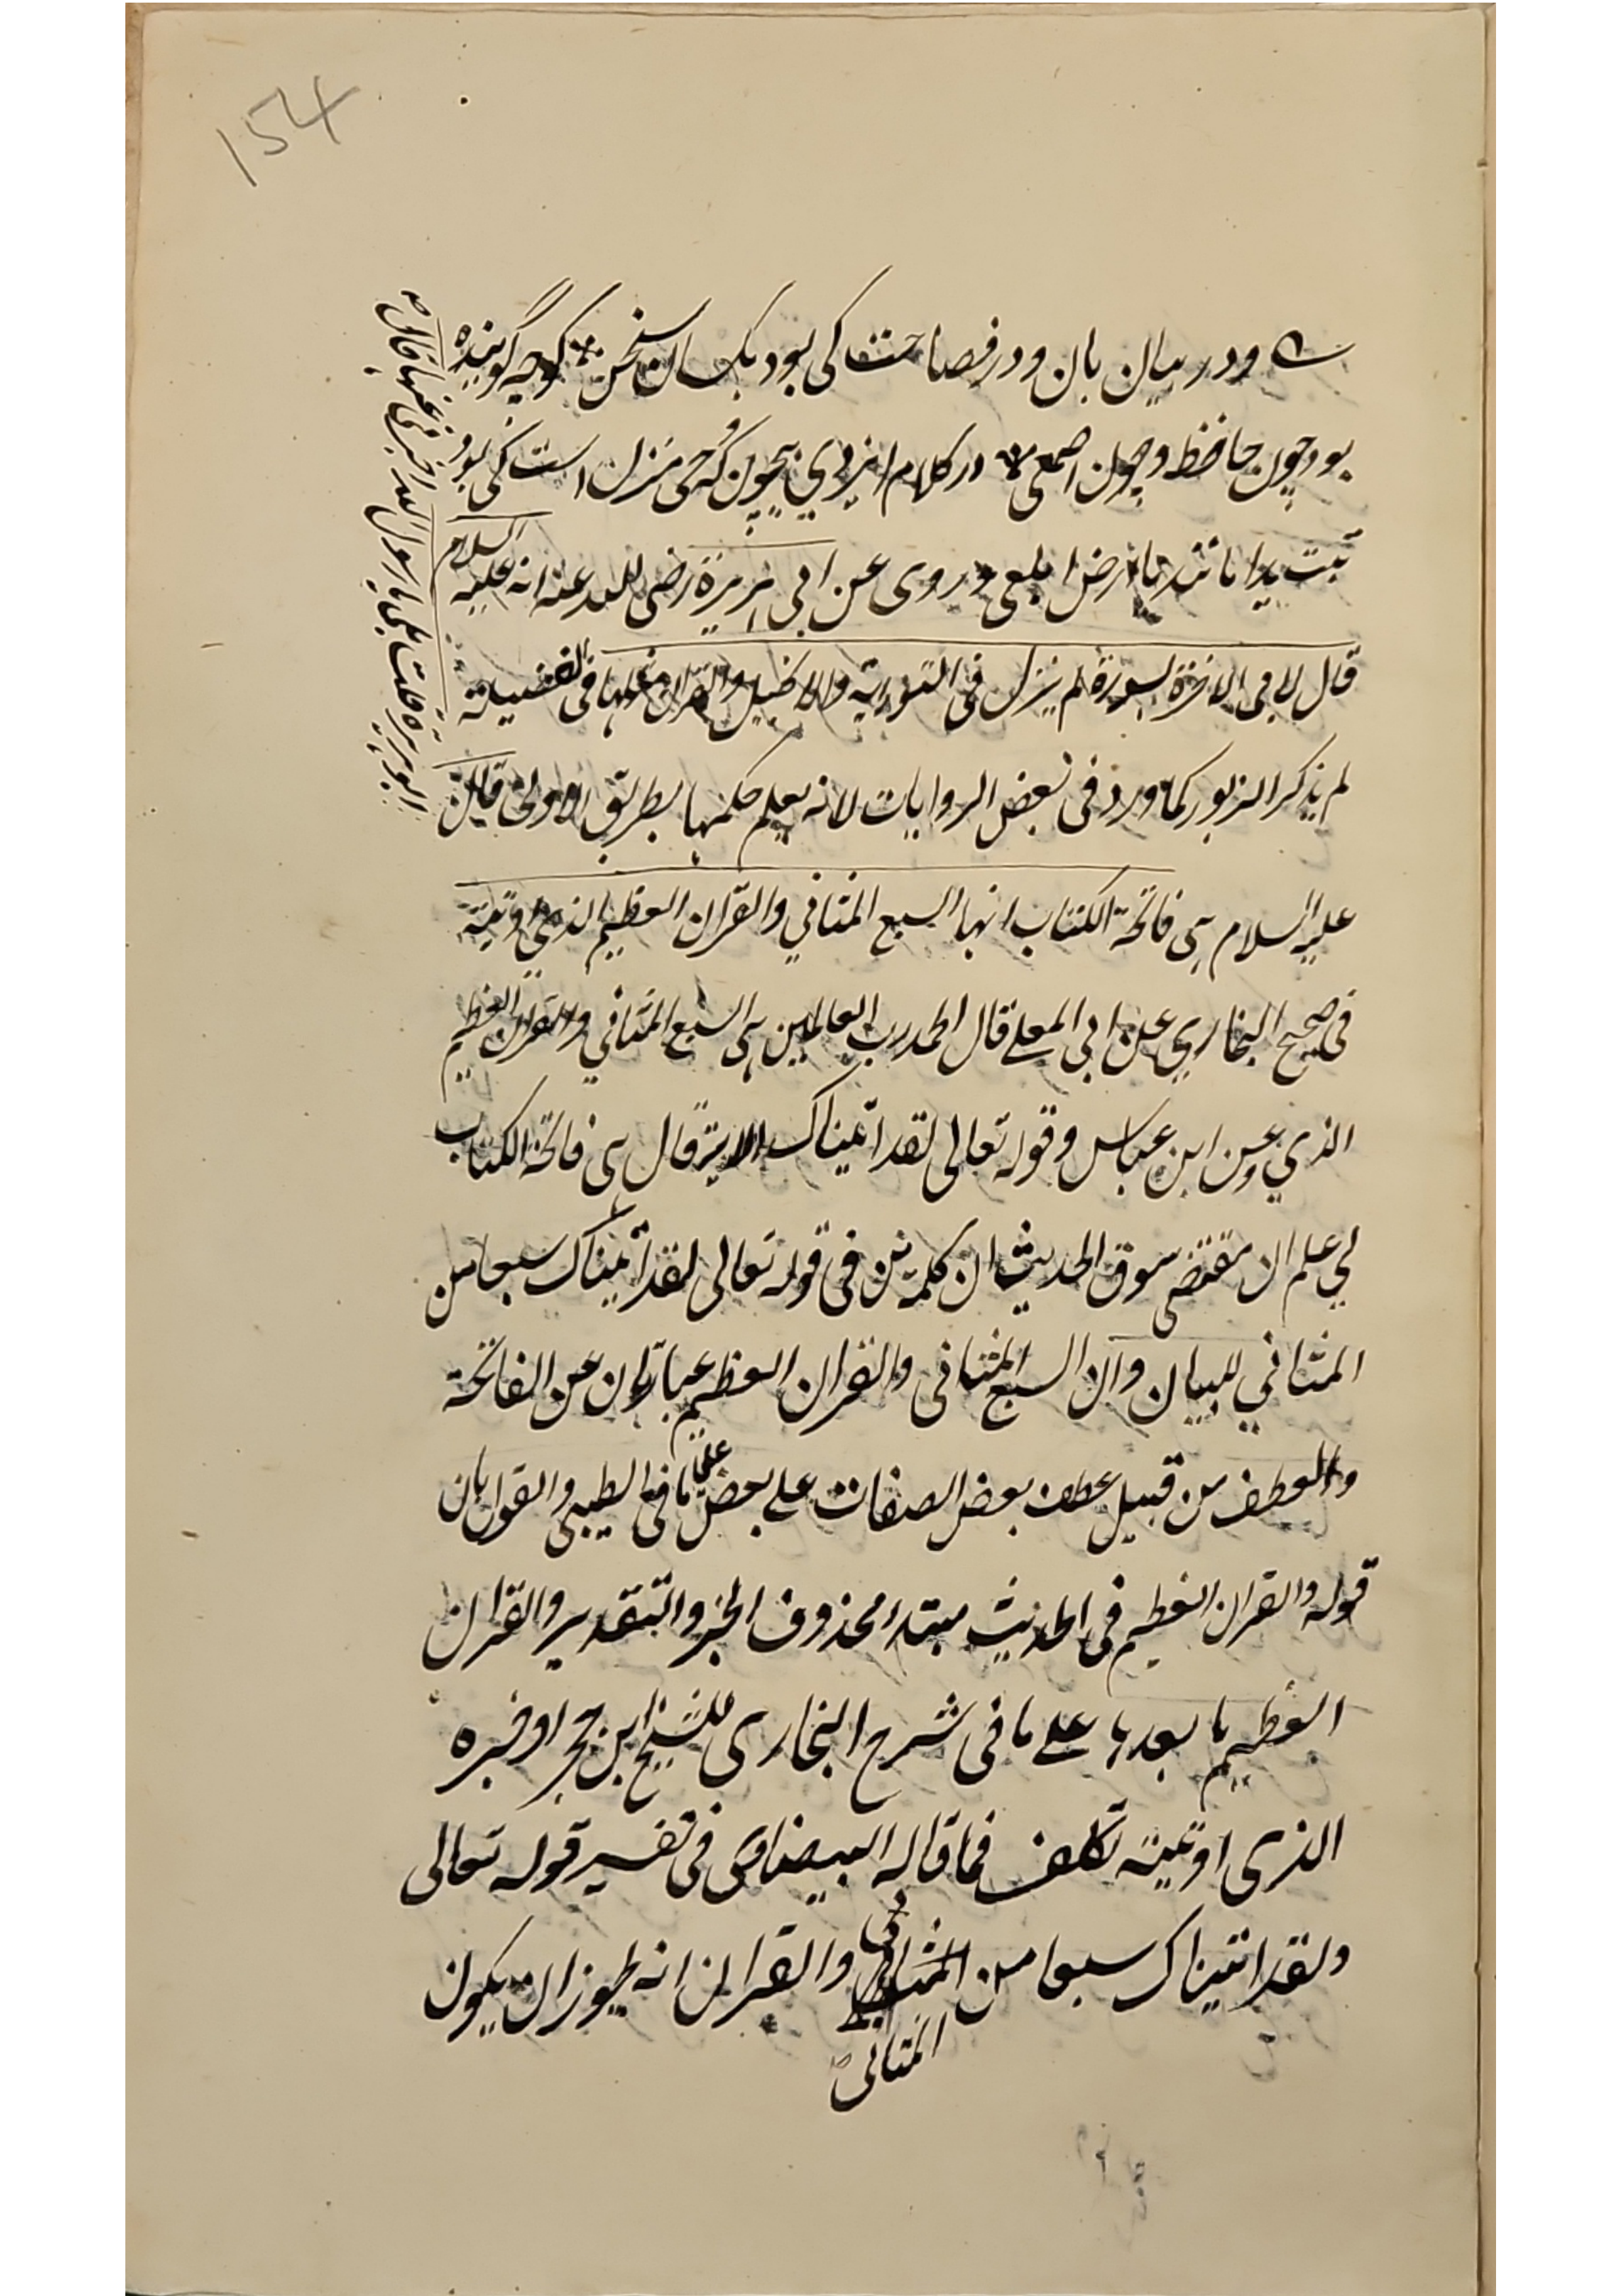 154
ودر بیان بان ودر فصاحت کی بود یکسان سخن گرچه گوینده
بود چون حافظ و چون اصمعی در کلام ایزدی بیچون که وحی منزل است کی بود
تبت یدا مانند یا ارض ابلعی وروی عن ابی هریرة رضی الله عنه انه علیه السلام
قال لابی الا اخبرک بسورة لم ینزل فی التوریة والانجیل والقران مثلها فی الفضیلة
لم یذکر الزبور کما ورد فی بعض الروایات لانه یعلم حکمها بطریق الاولی قال
علیه السلام هی فاتحة الکتاب انها السبع المثانی والقران العظیم الذی اوتیته
فی صحیح البخاری عن ابی المعلی قال الحمد رب العالمین هی السبع المثانی والقران العظیم
الذی وعن ابن عباس وقوله تعالی لقد آتیناک الایة قال هی فاتحة الکتاب
لی علم ان مقتضی سوق الحدیث ان کلمة من فی قوله تعالی لقد آتیناک سبعا من
المثانی للبیان وان السبع المثانی والقران العظیم عبارتان عن الفاتحة
والعطف من قبیل عطف بعض الصفات علی بعض علی ما فی الطیبی والقول بان
قوله والقران العظیم فی الحدیث مبتداء محذوف الخبر والتقدیر والقران
العظیم ما بعدها علی ما فی شرح البخاری للشیخ ابن حجر او خبره
الذی اوتیته تکلف فما قاله البیضاوی فی تفسیر قوله تعالی
ولقد اتیناک سبعا من المثانی والقران انه یجوز ان یکون
المثانی